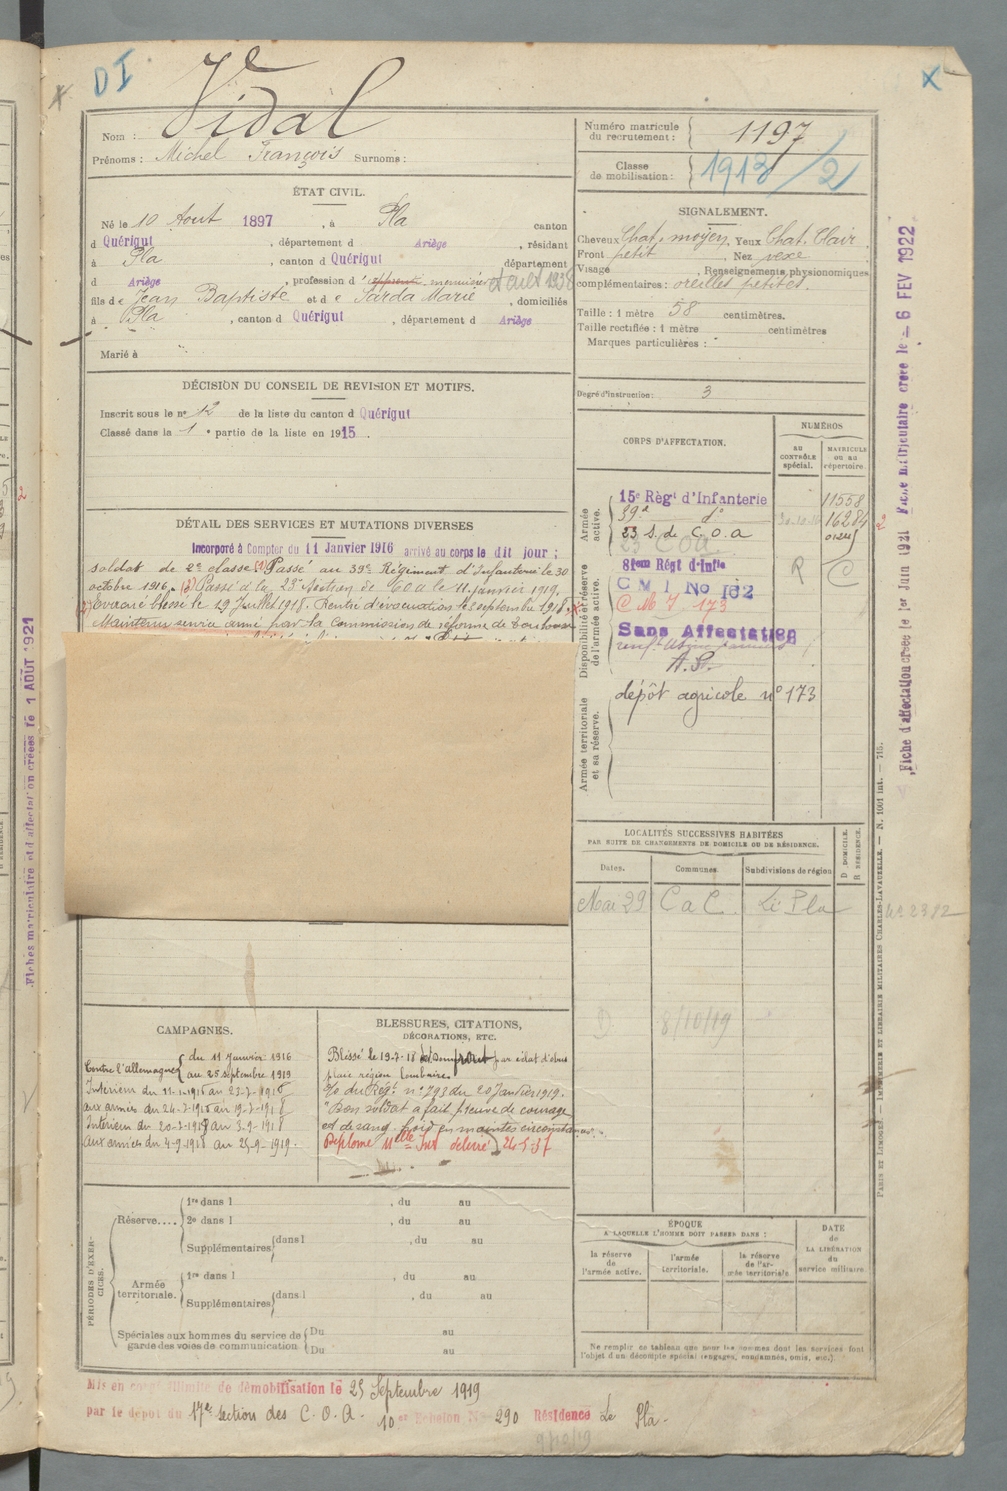 DI
X
Vidal
Nom :
Prénoms : Michel François Surnoms :
Numéro matricule du recrutement : 1197
Classe de mobilisation : 1913/2
ÉTAT CIVIL.
Né le 10 Aout 1897, à Pla canton
d Quérigut, département d Ariège, résidant
à Pla, canton d Quérigut département
d Ariège, profession d' apprenti menuisier
fils de Jean Baptiste et de Sarda Marie, domiciliés
à Pla, canton d Quérigut, département d Ariège
Marié à
SIGNALEMENT.
Cheveux Chat. moyen Yeux Chat. Clair
Front petit, Nez vexe
Visage, Renseignements physionomiques
complémentaires : oreilles petites.
Taille : 1 mètre 58 centimètres.
Taille rectifiée : 1 mètre centimètres
Marques particulières :
Degré d'instruction : 3
DÉCISION DU CONSEIL DE REVISION ET MOTIFS.
Inscrit sous le no 12 de la liste du canton d Quérigut
Classé dans la 1e partie de la liste en 1915.
DÉTAIL DES SERVICES ET MUTATIONS DIVERSES
Incorporé à Compter du 11 Janvier 1916 arrivé au corps le dit jour ;
soldat de 2e classe (1) Passé au 39e Régiment d'Infanterie le 30
octobre 1916. (2) Passé à la 23e Section de COA le 11 janvier 1919.
Evacué blessé le 19 Juillet 1918. Rentré d'évacuation le 3 septembre 1918.
Maintenu service armé par la Commission de réforme de Toulouse
CORPS D'AFFECTATION.
NUMÉROS
AU CONTRÔLE spécial.
MATRICULE OU AU répertoire.
Armée active.
15e Règt d'Infanterie 11558
39e do 16284
23 S. de C.O.a
23 COA
Disponibilité et réserve de l'armée active.
81em Régt d'Infie R C
CMI No 162
C M I 173
Sans Affectation
A.S.
dépôt agricole no 173
Armée territoriale et sa réserve.
LOCALITÉS SUCCESSIVES HABITÉES
PAR SUITE DE CHANGEMENTS DE DOMICILE OU DE RÉSIDENCE.
Dates. Communes. Subdivisions de région
D DOMICILE.
R RÉSIDENCE.
Mai 29 C a C. Le Pla
D 8/10/19
CAMPAGNES.
Contre l'allemagne { du 11 Janvier 1916
au 25 septembre 1919
BLESSURES, CITATIONS,
DÉCORATIONS, ETC.
Blessé le 19-7-18 par éclat d'obus
plaie région lombaire
o/o du Régt no 793 du 20 Janvier 1919.
"Bon soldat a fait preuve de courage
et de sang froid en maintes circonstances."
PÉRIODES D'EXERCICES.
Réserve.... 1re dans l , du au
2e dans l , du au
Supplémentaires dans l , du au
Armée territoriale. 1re dans l , du au
Supplémentaires dans l , du au
Spéciales aux hommes du service de garde des voies de communication
Du au
Du au
ÉPOQUE
A LAQUELLE L'HOMME DOIT PASSER DANS :
la réserve de l'armée active.
l'armée territoriale.
la réserve de l'armée territoriale
DATE de LA LIBÉRATION du service militaire.
Ne remplir ce tableau que pour les hommes dont les services font
l'objet d'un décompte spécial (engagés, condamnés, omis, etc.)
Mis en congé illimité de démobilisation le 25 Septembre 1919
par le dépot du 17e section des C.O.A. 10er Echelon No 290 Résidence Le Pla.
9/10/19
Fiches matriculaire et d'affectation créées le 1 AOUT 1921
Fiche d'affectation créée le 1er Juin 1921 Fiche matriculaire créée le - 6 FEV 1922
PARIS ET LIMOGES. — IMPRIMERIE ET LIBRAIRIE MILITAIRES CHARLES-LAVAUZELLE. — N. 1001 int. — 715.